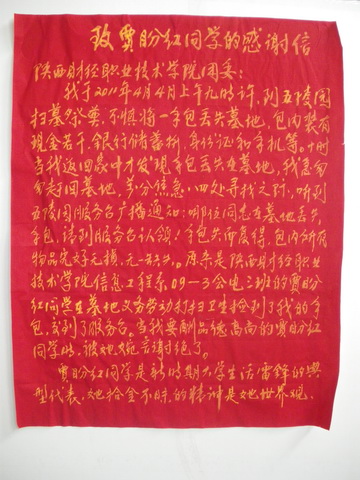 致贾盼红同学的感谢信
陕西财经职业技术学院团委:
我于2011年4月4日上午九时许,到五陵园
扫墓祭奠,不慎将一手包丢失墓地,包内装有
现金若干、银行储蓄折、身份证和手机等。
当我返回家中才发现手包丢在墓地,我急匆
匆赶回墓地,万分焦急,四处寻找之际,听到
五陵园服务台广播通知:哪位同志在墓地丢失
手包,请到服务台认领!手包失而复得,包内所有
物品完好无损,无一缺失。原来是陕西财经职业
技术学院信息工程系09-3会电三班的贾盼
红同学在墓地义务劳动打扫卫生捡到了我的手
包,交到了服务台,当我要酬品德高尚的贾盼红
同学时,被她婉言谢绝了。
贾盼红同学是新时期大学生活雷锋的典
型代表,她拾金不昧的精神是她世界观、